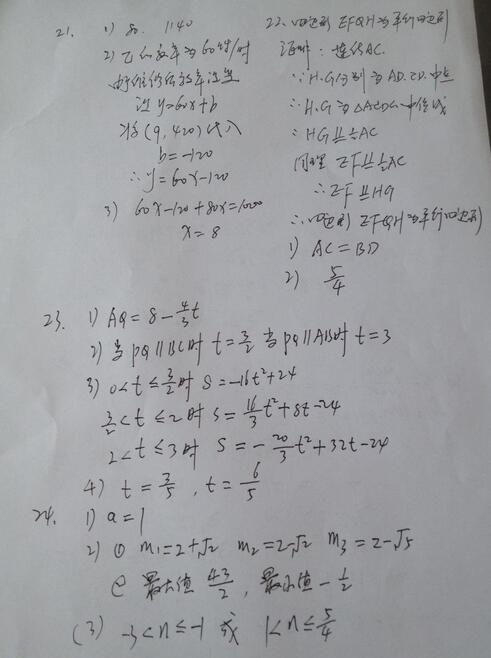 21. 1) 80. 1140
2) 乙的效率为60件/时
设 y=60x+b
将(9,420)代入
b=-120
∴y=60x-120
3) 60x-120+80x=1000
x=8
22. 四边形EFGH为平行四边形
证明：连结AC.
∵H.G分别为AD.CD.中点
∴H.G为△ACD的中位线
∴HG∥=½AC
同理 EF∥=½AC
∴EF∥=HG
∴四边形EFGH为平行四边形
1) AC=BD
2) 5/4
23. 1) AQ=8-4/3t
2) 当PQ∥BC时 t=3/2 当PQ∥AB时 t=3
3) 0<t≤3/2时 S=-16t²+24
3/2<t≤2时 S=16/3t²+8t-24
2<t≤3时 S=-20/3t²+32t-24
4) t=3/5, t=6/5
24. 1) a=1
2) ① m₁=2+√2 m₂=2-√2 m₃=2-√5
② 最大值43/2, 最小值-1/2
(3) -3<n≤-1 或 1<n≤5/4